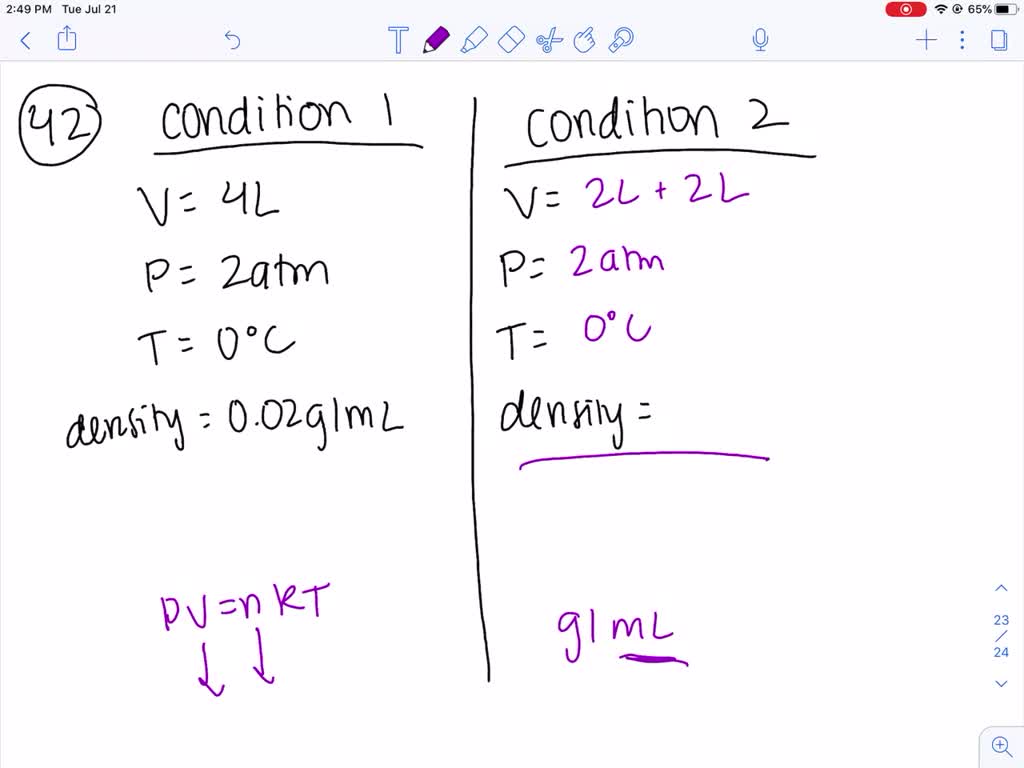 2:49 PM Tue Jul 21
65%
T
42
condition 1
V = 4L
P = 2atm
T = 0°C
density = 0.02g/mL
PV = nRT
condition 2
V = 2L + 2L
P = 2atm
T = 0°C
density =
g/mL
23
/
24